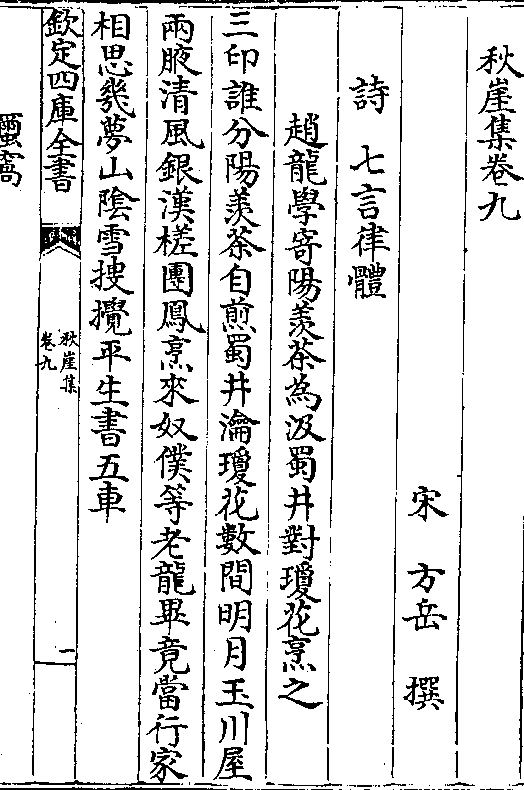 秋崖集卷九
宋 方岳 撰
詩 七言律體
趙龍學寄陽羨茶為汲蜀井對瓊花烹之
三印誰分陽羨茶自煎蜀井瀹瓊花數間明月玉川屋
兩腋清風銀漢槎團鳳烹來奴僕等老龍畢竟當行家
相思幾夢山陰雪搜攪平生書五車
欽定四庫全書
秋崖集
卷九
一